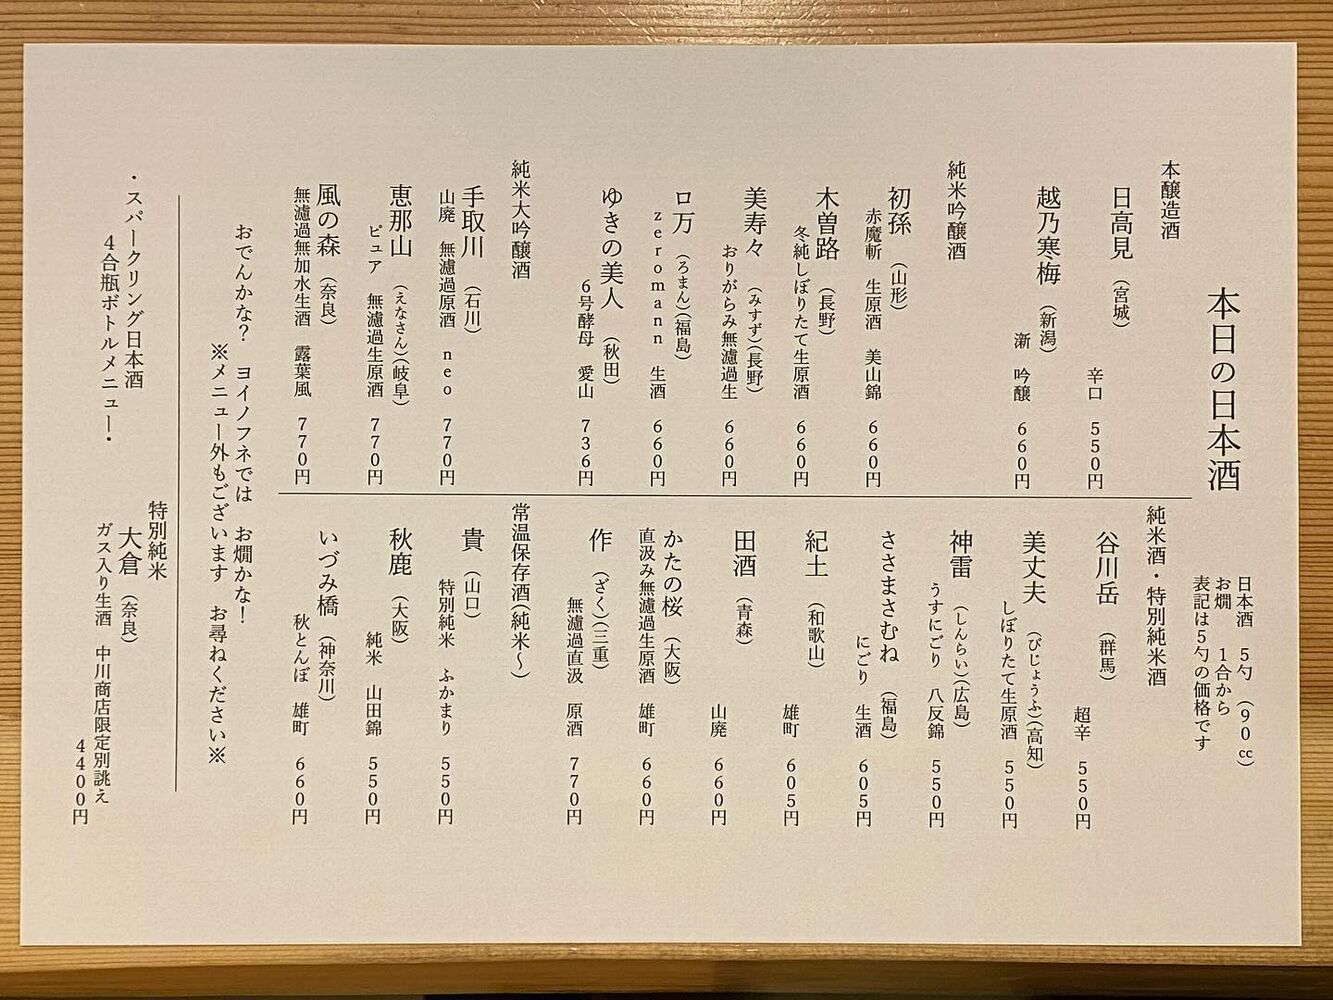 本日の日本酒
日本酒　５勺（９０㏄）
お燗　１合から
表記は５勺の価格です
本醸造酒
日高見（宮城）
辛口　５５０円
越乃寒梅（新潟）
漸　吟醸　６６０円
純米吟醸酒
初孫（山形）
赤魔斬　生原酒　美山錦　６６０円
木曽路（長野）
冬純しぼりたて生原酒　６６０円
美寿々（みすず）（長野）
おりがらみ無濾過生　６６０円
ロ万（ろまん）（福島）
ｚｅｒｏｍａｎｎ　生酒　６６０円
ゆきの美人（秋田）
６号酵母　愛山　７３６円
純米大吟醸酒
手取川（石川）
山廃　無濾過原酒　ｎｅｏ　７７０円
恵那山（えなさん）（岐阜）
ピュア　無濾過生原酒　７７０円
風の森（奈良）
無濾過無加水生酒　露葉風　７７０円
純米酒・特別純米酒
谷川岳（群馬）
超辛　５５０円
美丈夫（びじょうふ）（高知）
しぼりたて生原酒　５５０円
神雷（しんらい）（広島）
うすにごり　八反錦　５５０円
ささまさむね（福島）
にごり　生酒　６０５円
紀土（和歌山）
雄町　６０５円
田酒（青森）
山廃　６６０円
かたの桜（大阪）
直汲み無濾過生原酒　雄町　６６０円
作（ざく）（三重）
無濾過直汲　原酒　７７０円
常温保存酒（純米〜）
貴（山口）
特別純米　ふかまり　５５０円
秋鹿（大阪）
純米　山田錦　５５０円
いづみ橋（神奈川）
秋とんぼ　雄町　６６０円
おでんかな？　ヨイノフネでは　お燗かな！
※メニュー外もございます　お尋ねください※
・スパークリング日本酒
４合瓶ボトルメニュー・
特別純米
大倉（奈良）
ガス入り生酒　中川商店限定別誂え
４４００円